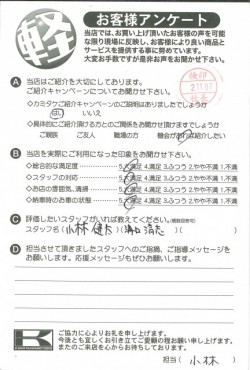 軽
お客様アンケート
当店では、お買い上げ頂いたお客様の声を可能
な限り現場に反映し、お客様により良い商品と
サービスを提供する事に努めています。
大変お手数ですが是非お声をお聞かせ下さい。
A 当店はご紹介を大切にしております。
ご紹介キャンペーンについてお聞かせ下さい。
◇カミタケご紹介キャンペーンのご説明はありましたでしょうか
はい いいえ
◇具体的にご紹介頂ける方とのご関係をお聞かせ頂けますでしょうか
ご親族 ご友人 職場の方 機会があれば紹介したい
B 当店を実際にご利用になった印象をお聞かせ下さい。
◇総合的な満足度 5.大満足 4.満足 3.ふつう 2.やや不満 1.不満
◇スタッフの対応 5.大満足 4.満足 3.ふつう 2.やや不満 1.不満
◇お店の雰囲気、清潔 5.大満足 4.満足 3.ふつう 2.やや不満 1.不満
◇納車時のお車の状態 5.大満足 4.満足 3.ふつう 2.やや不満 1.不満
C 評価したいスタッフがいれば教えてください。(複数回答可)
スタッフ名( 小林 健太
D 担当させて頂きましたスタッフへのご指摘、ご指導メッセージを
お願いします。応援メッセージもぜひお願いします。
K
ご協力に心よりお礼を申し上げます。
今後とも宜しくお引き立てご愛顧の程お願い申し上げます。
またのご来店を心からお待ちしております。
担当( 小林 )